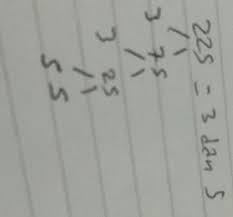 225 = 3 dan 5
3 75
3 25
5 5